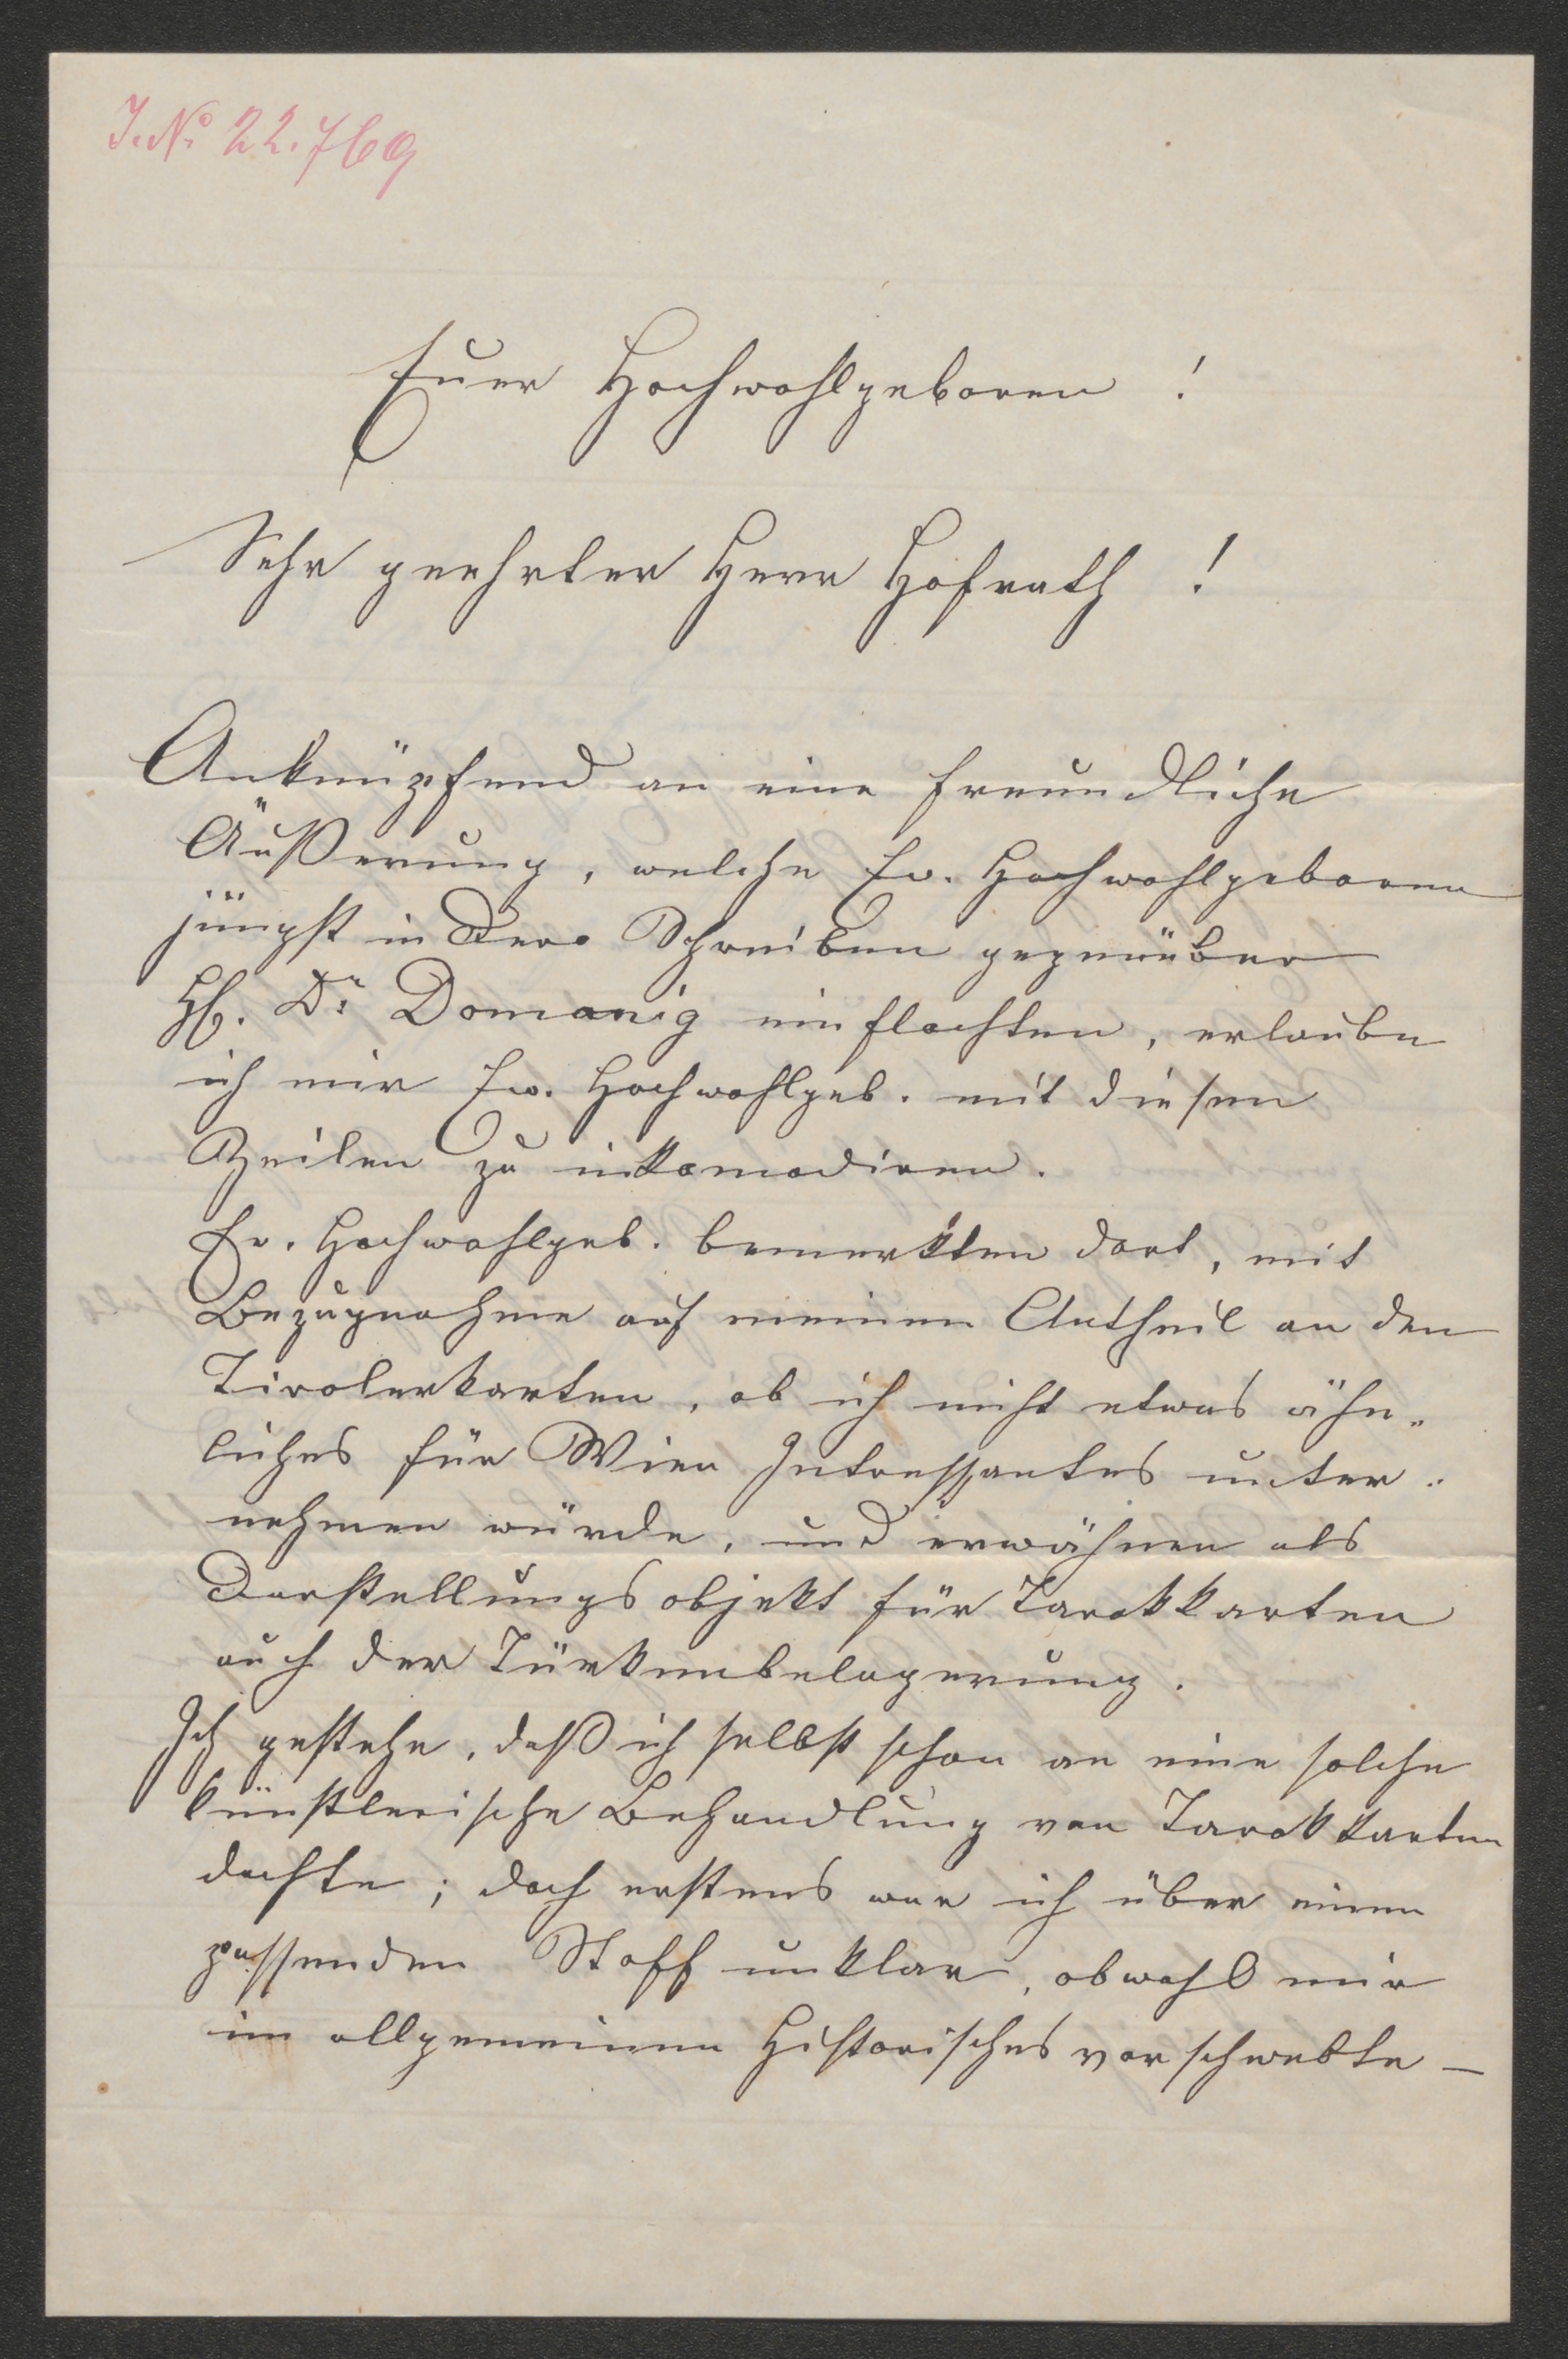 J. No 22.769
Euer Hochwohlgeboren !
Sehr geehrter Herr Hofrath !
Anknüpfend an eine freundliche
Äußerung, welche Ew. Hochwohlgeboren
jüngst in Dero Schreiben gegenüber
H. Dr Domanig einflochten, erlaube
ich mir Ew. Hochwohlgeb. mit diesen
Zeilen zu inkomodiren.
Ew. Hochwohlgeb. bemerkten dort, mit
Bezugnahme auf meinen Antheil an den
Tirolerkarten, ob ich nicht etwas ähn„
liches für Wien Intressantes unter„
nehmen würde, und erwähnen als
Darstellungsobjekt für Tarokkarten
auch der Türkenbelagerung.
Ich gestehe, daß ich selbst schon an eine solche
künstlerische Behandlung von Tarokkarten
dachte; doch erstens war ich über einen
passenden Stoff unklar, obwohl mir
im allgemeinen Historisches vorschwebte –